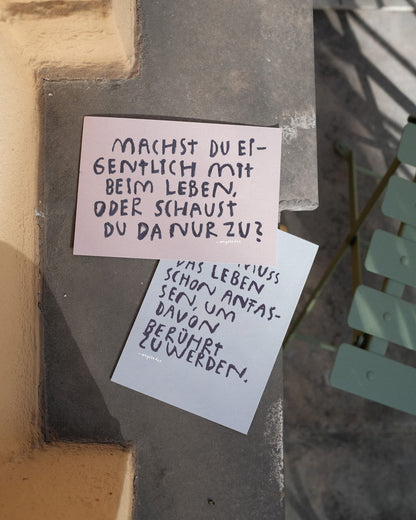 MACHST DU EI-
GENTLICH MIT
BEIM LEBEN,
ODER SCHAUST
DU DA NUR ZU?
MUSS
DAS LEBEN
SCHON ANFAS-
SEN, UM
DAVON
BERÜHRT
ZU WERDEN.